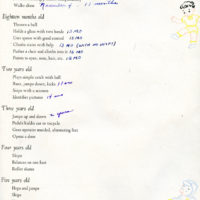 Walks alone November 9 11 months
Eighteen months old
Throws a ball
Holds a glass with two hands 15 MO
Uses spoon with good control 15 MO
Climbs stairs with help 13 MO
Pushes a chair and climbs into it 15 MO
Points to eyes, nose, hair, etc. 18 MO
Two years old
Plays simple catch with ball
Runs, jumps down, kicks
Snips with a scissors
Identifies pictures
Three years old
Jumps up and down 2 years
Pedals tricycle
Goes upstairs unaided, alternating feet
Opens a door
Four years old
Skips
Balances on one foot
Roller skates
Five years old
Hops and jumps
Skips